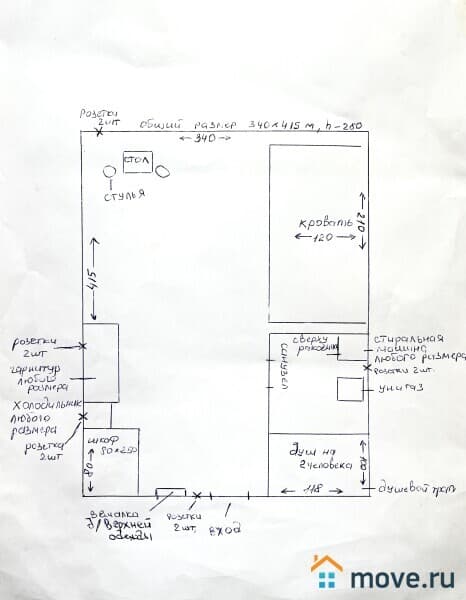 розетки
2шт
общий размер 340×415 м, h-260
340
стол
стулья
кровать
120
210
415
розетки
2шт
гарнитур
любого
размера
холодильник
любого
размера
розетка
2шт
шкаф
80×250
80
санузел
сверху
раковина
стиральная
машина
любого размера
розетки 2шт.
унитаз
душ на
2 человека
100
118
душевой трап
вешалка
д/верхней
одежды
розетки
2шт.
вход
move.ru